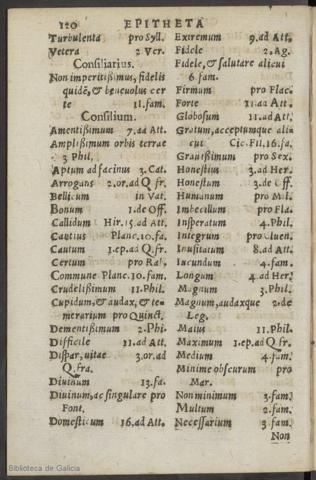 120 EPITHETA
Turbulenta pro Syll.
Vetera 2 Ver.
Consiliarius.
Non imperitißimus, fidelis
quidē, & beneuolus cer
te 11. fam.
Consilium.
Amentißimum 7. ad Att.
Amplißimum orbis terræ
3 Phil.
Aptum ad facinus 3. Cat.
Arrogans 2. or. ad Q fr.
Bellicum in Vat.
Bonum 1. de Off.
Callidum Hir. 15. ad Att.
Cautius Planc. 10. fa.
Cautum 1. ep. ad Q. fr.
Certum pro Rab.
Commune Planc. 10. fam.
Crudelißimum 11. Phil.
Cupidum, & audax, & te-
merarium pro Quinct.
Dementißimum 2. Phi.
Difficile 11. ad Att.
Dispar, uitæ 3. or. ad
Q. fra.
Diuinum 13. fa.
Diuinum, ac singulare pro
Font.
Domesticum 16. ad Att.
Extremum 9. ad Att.
Fidele 2. Ag.
Fidele, & salutare alicui
6. fam.
Firmum pro Flac.
Forte 11. ad Att.
Globosum 11. ad Att.
Gratum, acceptumque ali
cui Cic. Fil. 16. fa.
Grauißimum pro Sex.
Honestius 3. ad Her.
Honestum 3. de Off.
Humanum pro Mil.
Imbecillum pro Fla.
Insperatum 4. Phil.
Integrum pro Cluen.
Inusitatum 8. ad Att.
Iucundum 4. fam.
Longum 4. ad Her.
Magnum 3. Phil.
Magnum, audaxque 2. de
Leg.
Maius 11. Phil.
Maximum 1. ep. ad Q fr.
Medium 4. fam.
Minime obscurum pro
Mar.
Non minimum 3. fam.
Multum 2. fam.
Necessarium 3. fam.
Non
Biblioteca de Galicia